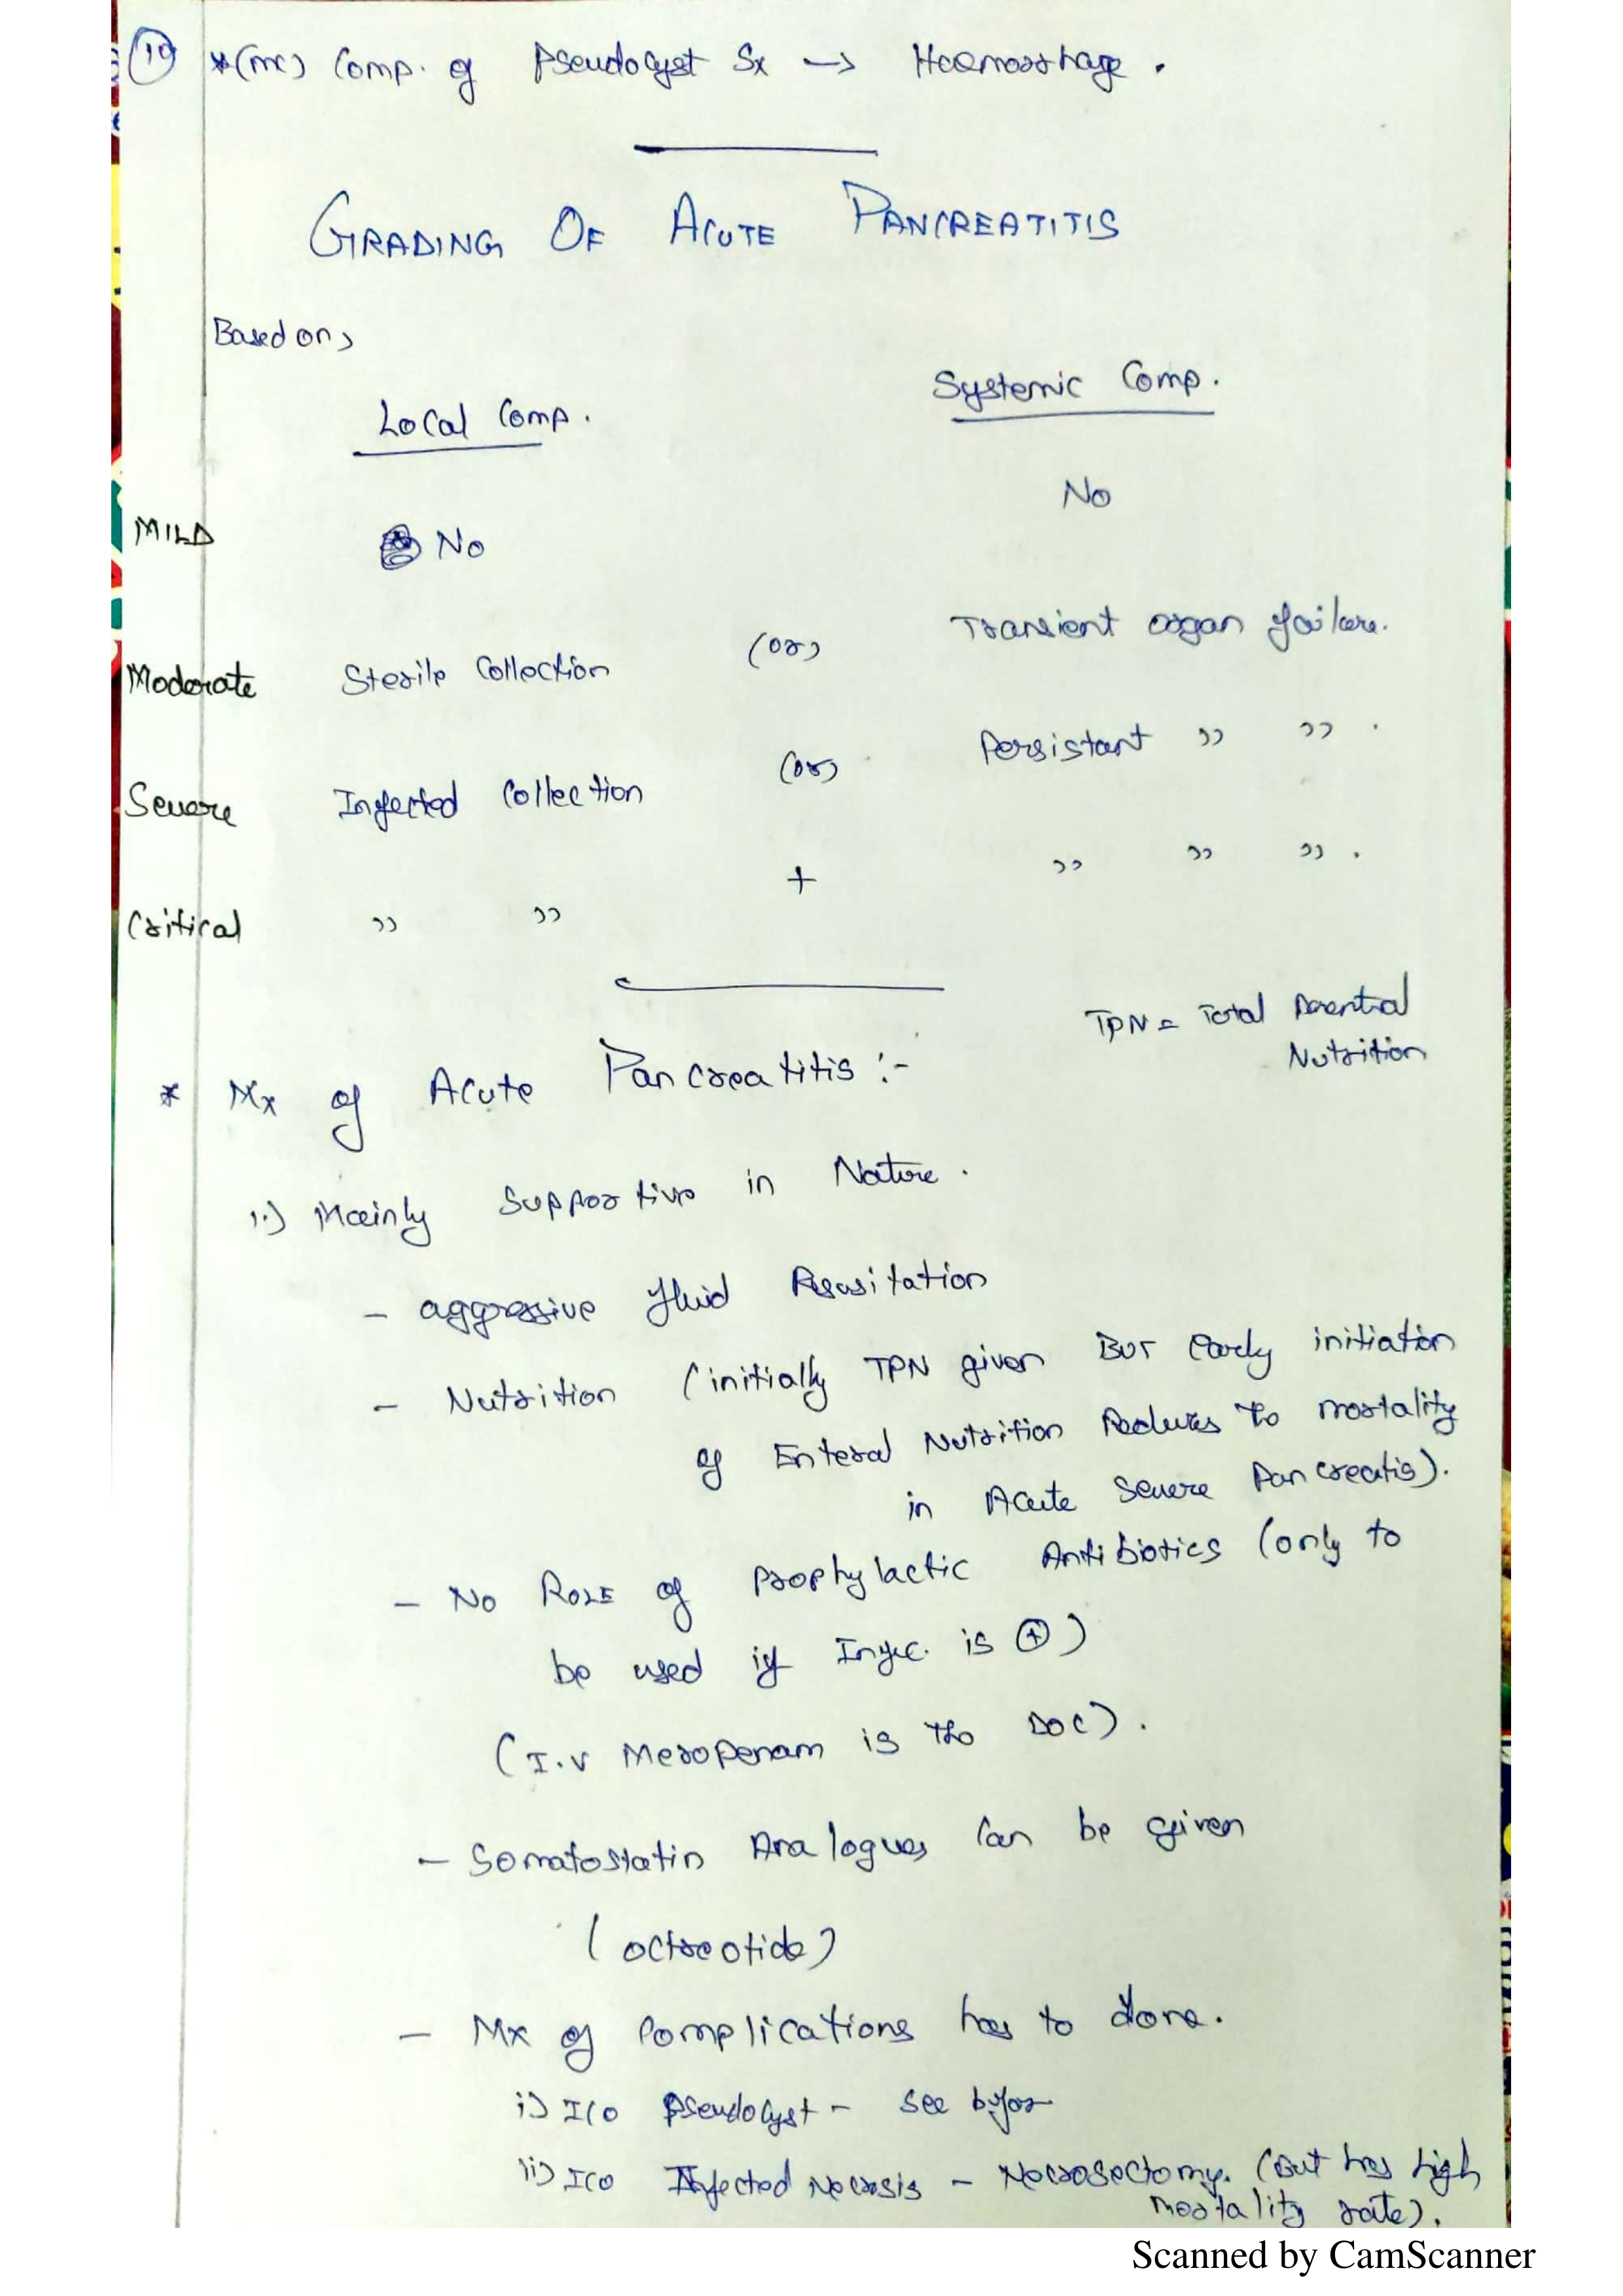 10 *(mc) Comp. of Pseudocyst Sx → Haemorrhage.
GRADING OF ACUTE PANCREATITIS
Based on,
Local Comp. Systemic Comp.
MILD No No
Moderate Sterile Collection (or) Transient organ failure.
Severe Infected Collection (or) Persistant ,, ,, .
Critical ,, ,, + ,, ,, ,, .
TPN = Total Parentral
Nutrition
* Mx of Acute Pancreatitis :-
1.) Mainly Supportive in Nature.
- aggressive fluid Resusitation
- Nutrition (initially TPN given BUT Early initiation
of Enteral Nutrition Reduces the mortality
in Acute Severe Pancreatis).
- No ROLE of prophylactic Antibiotics (only to
be used if Infec. is ⊕)
(I.V Meropenam is the DOC).
- Somatostatin Analogues Can be given
(octreotide)
- Mx of Complications has to done.
i) I/O Pseudocyst - See before
ii) I/O Infected Necrosis - Necrosectomy. (But has high
mortality rate).
Scanned by CamScanner